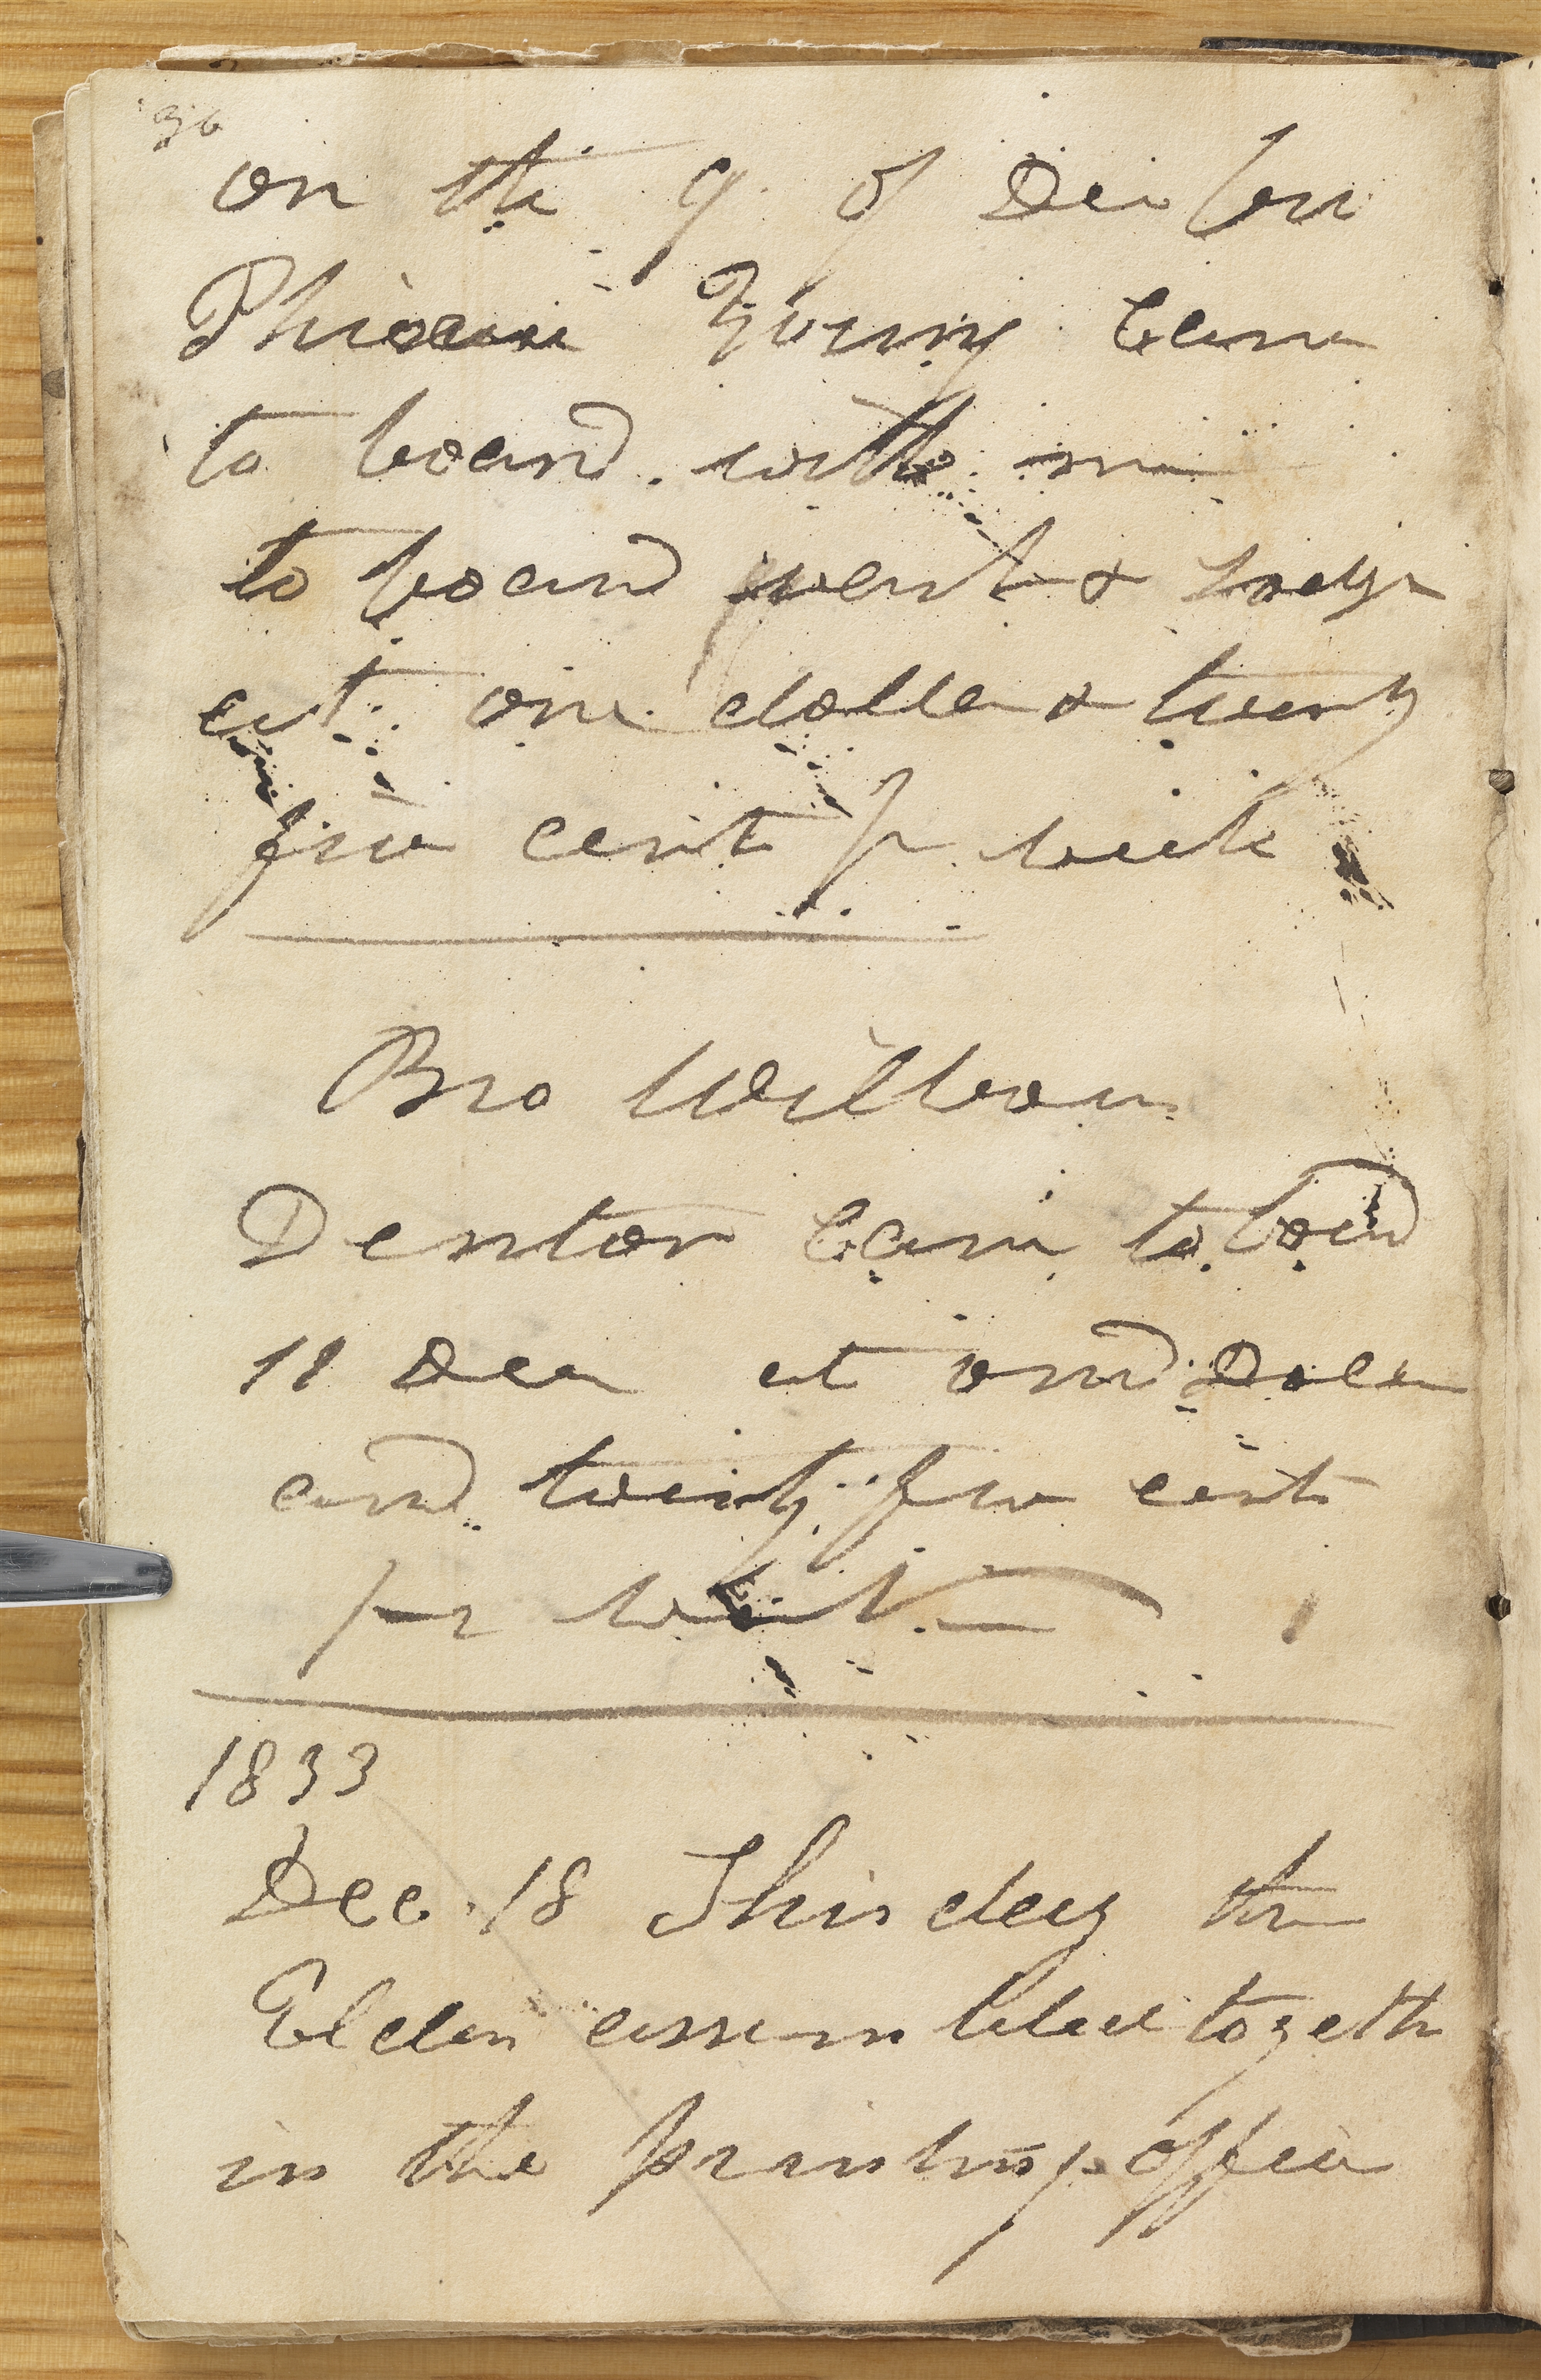 36
on the 9. of Decber
Phineas Young came
to board with me
to board wash & lodge
at one dollar & twenty
five cent pr week
Bro William
Denton came to bord
11 Dec at one Doler
and twenty five cent
per week
1833
Dec 18 This day the
Elders assembled togeth
in the printing office